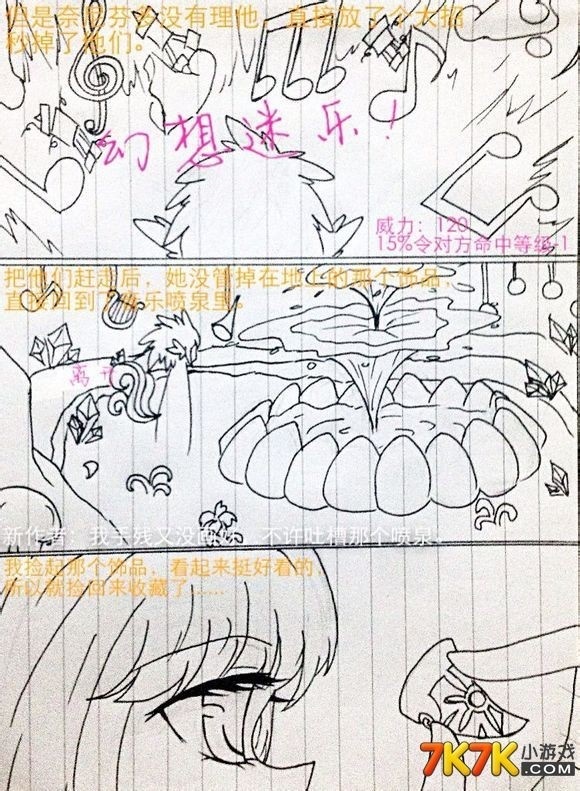 但是奈芬多没有理他，直接放了个大招
秒掉了他们。
幻想迷乐！
威力：120
15%令对方命中等级-1
把他们赶走后，她没管掉在地上的那个饰品，
直接回到了音乐喷泉里。
离开
新作者：我手残又没，不许吐槽那个喷泉。
我捡起那个饰品，看起来挺好看的，
所以就捡回来收藏了……
7K7K小游戏
.COM